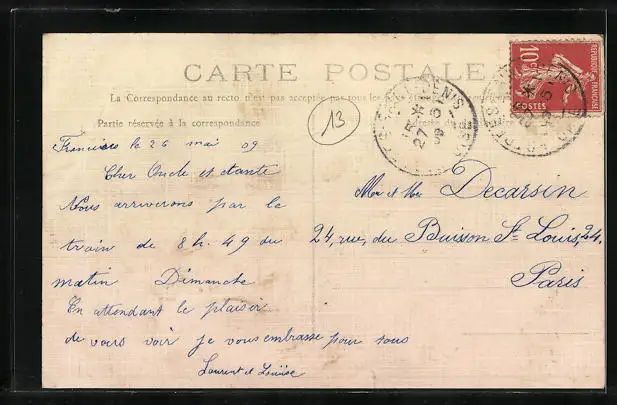 CARTE POSTALE
La Correspondance au recto n'est pas acceptée par tous les
Partie réservée à la correspondance
13
RÉPUBLIQUE FRANÇAISE
10c
POSTES
le 26 mai 09
Cher Oncle et tante
Nous arriverons par le
train de 8 h. 49 du
matin Dimanche
En attendant le plaisir
de vous voir je vous embrasse pour tous
Laurent et Louise
Mr et Mme Decarsin
24, rue, du Buisson St Louis, 24.
Paris